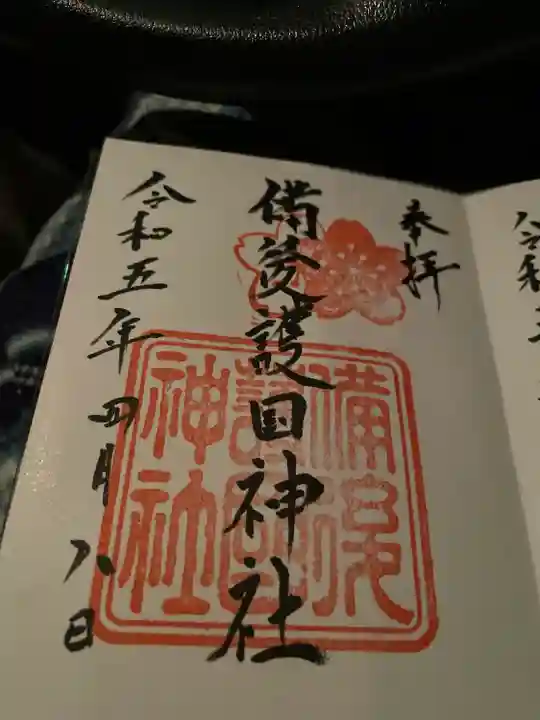 奉拝
備後護国神社
令和五年四月八日
備後
護国
神社
令和五